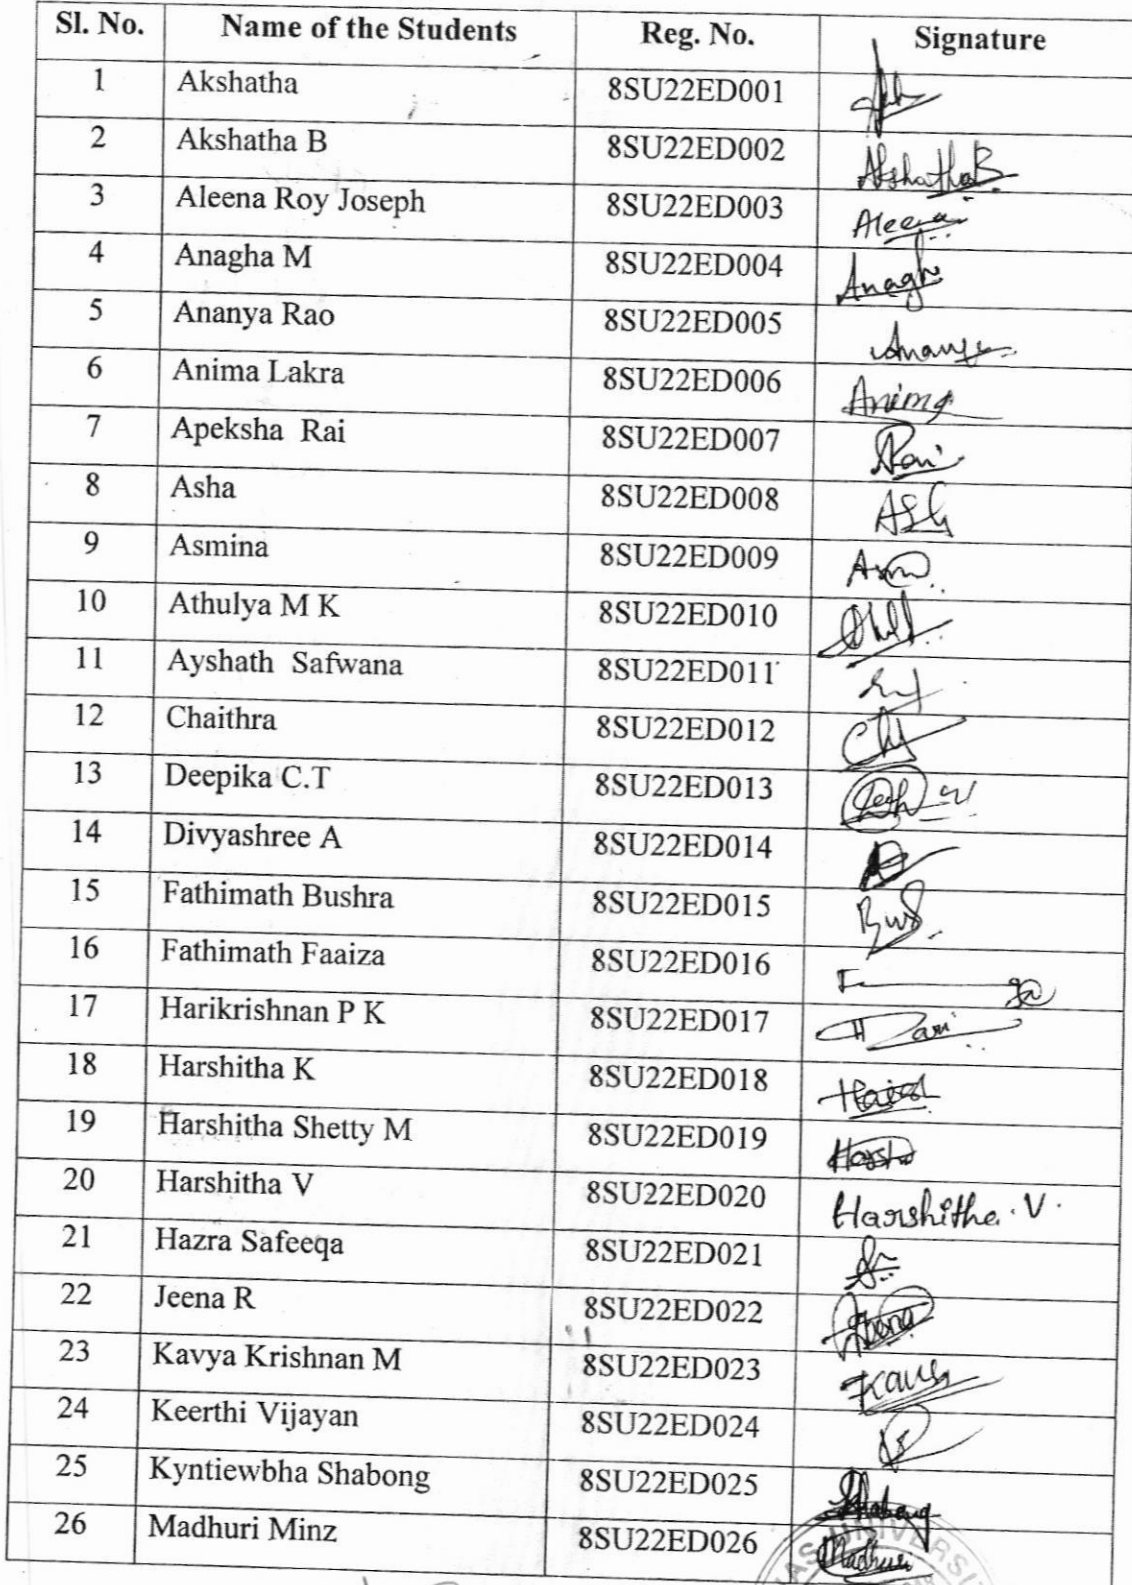 Sl. No. Name of the Students Reg. No. Signature
1 Akshatha 8SU22ED001
2 Akshatha B 8SU22ED002 Akshatha B
3 Aleena Roy Joseph 8SU22ED003 Aleena
4 Anagha M 8SU22ED004 Anagha
5 Ananya Rao 8SU22ED005 Ananya
6 Anima Lakra 8SU22ED006 Anima
7 Apeksha Rai 8SU22ED007 Rai
8 Asha 8SU22ED008
9 Asmina 8SU22ED009
10 Athulya M K 8SU22ED010
11 Ayshath Safwana 8SU22ED011
12 Chaithra 8SU22ED012
13 Deepika C.T 8SU22ED013
14 Divyashree A 8SU22ED014
15 Fathimath Bushra 8SU22ED015
16 Fathimath Faaiza 8SU22ED016
17 Harikrishnan P K 8SU22ED017
18 Harshitha K 8SU22ED018
19 Harshitha Shetty M 8SU22ED019
20 Harshitha V 8SU22ED020 Harshitha. V.
21 Hazra Safeeqa 8SU22ED021
22 Jeena R 8SU22ED022 Jeena
23 Kavya Krishnan M 8SU22ED023
24 Keerthi Vijayan 8SU22ED024
25 Kyntiewbha Shabong 8SU22ED025 Shabong
26 Madhuri Minz 8SU22ED026 Madhuri